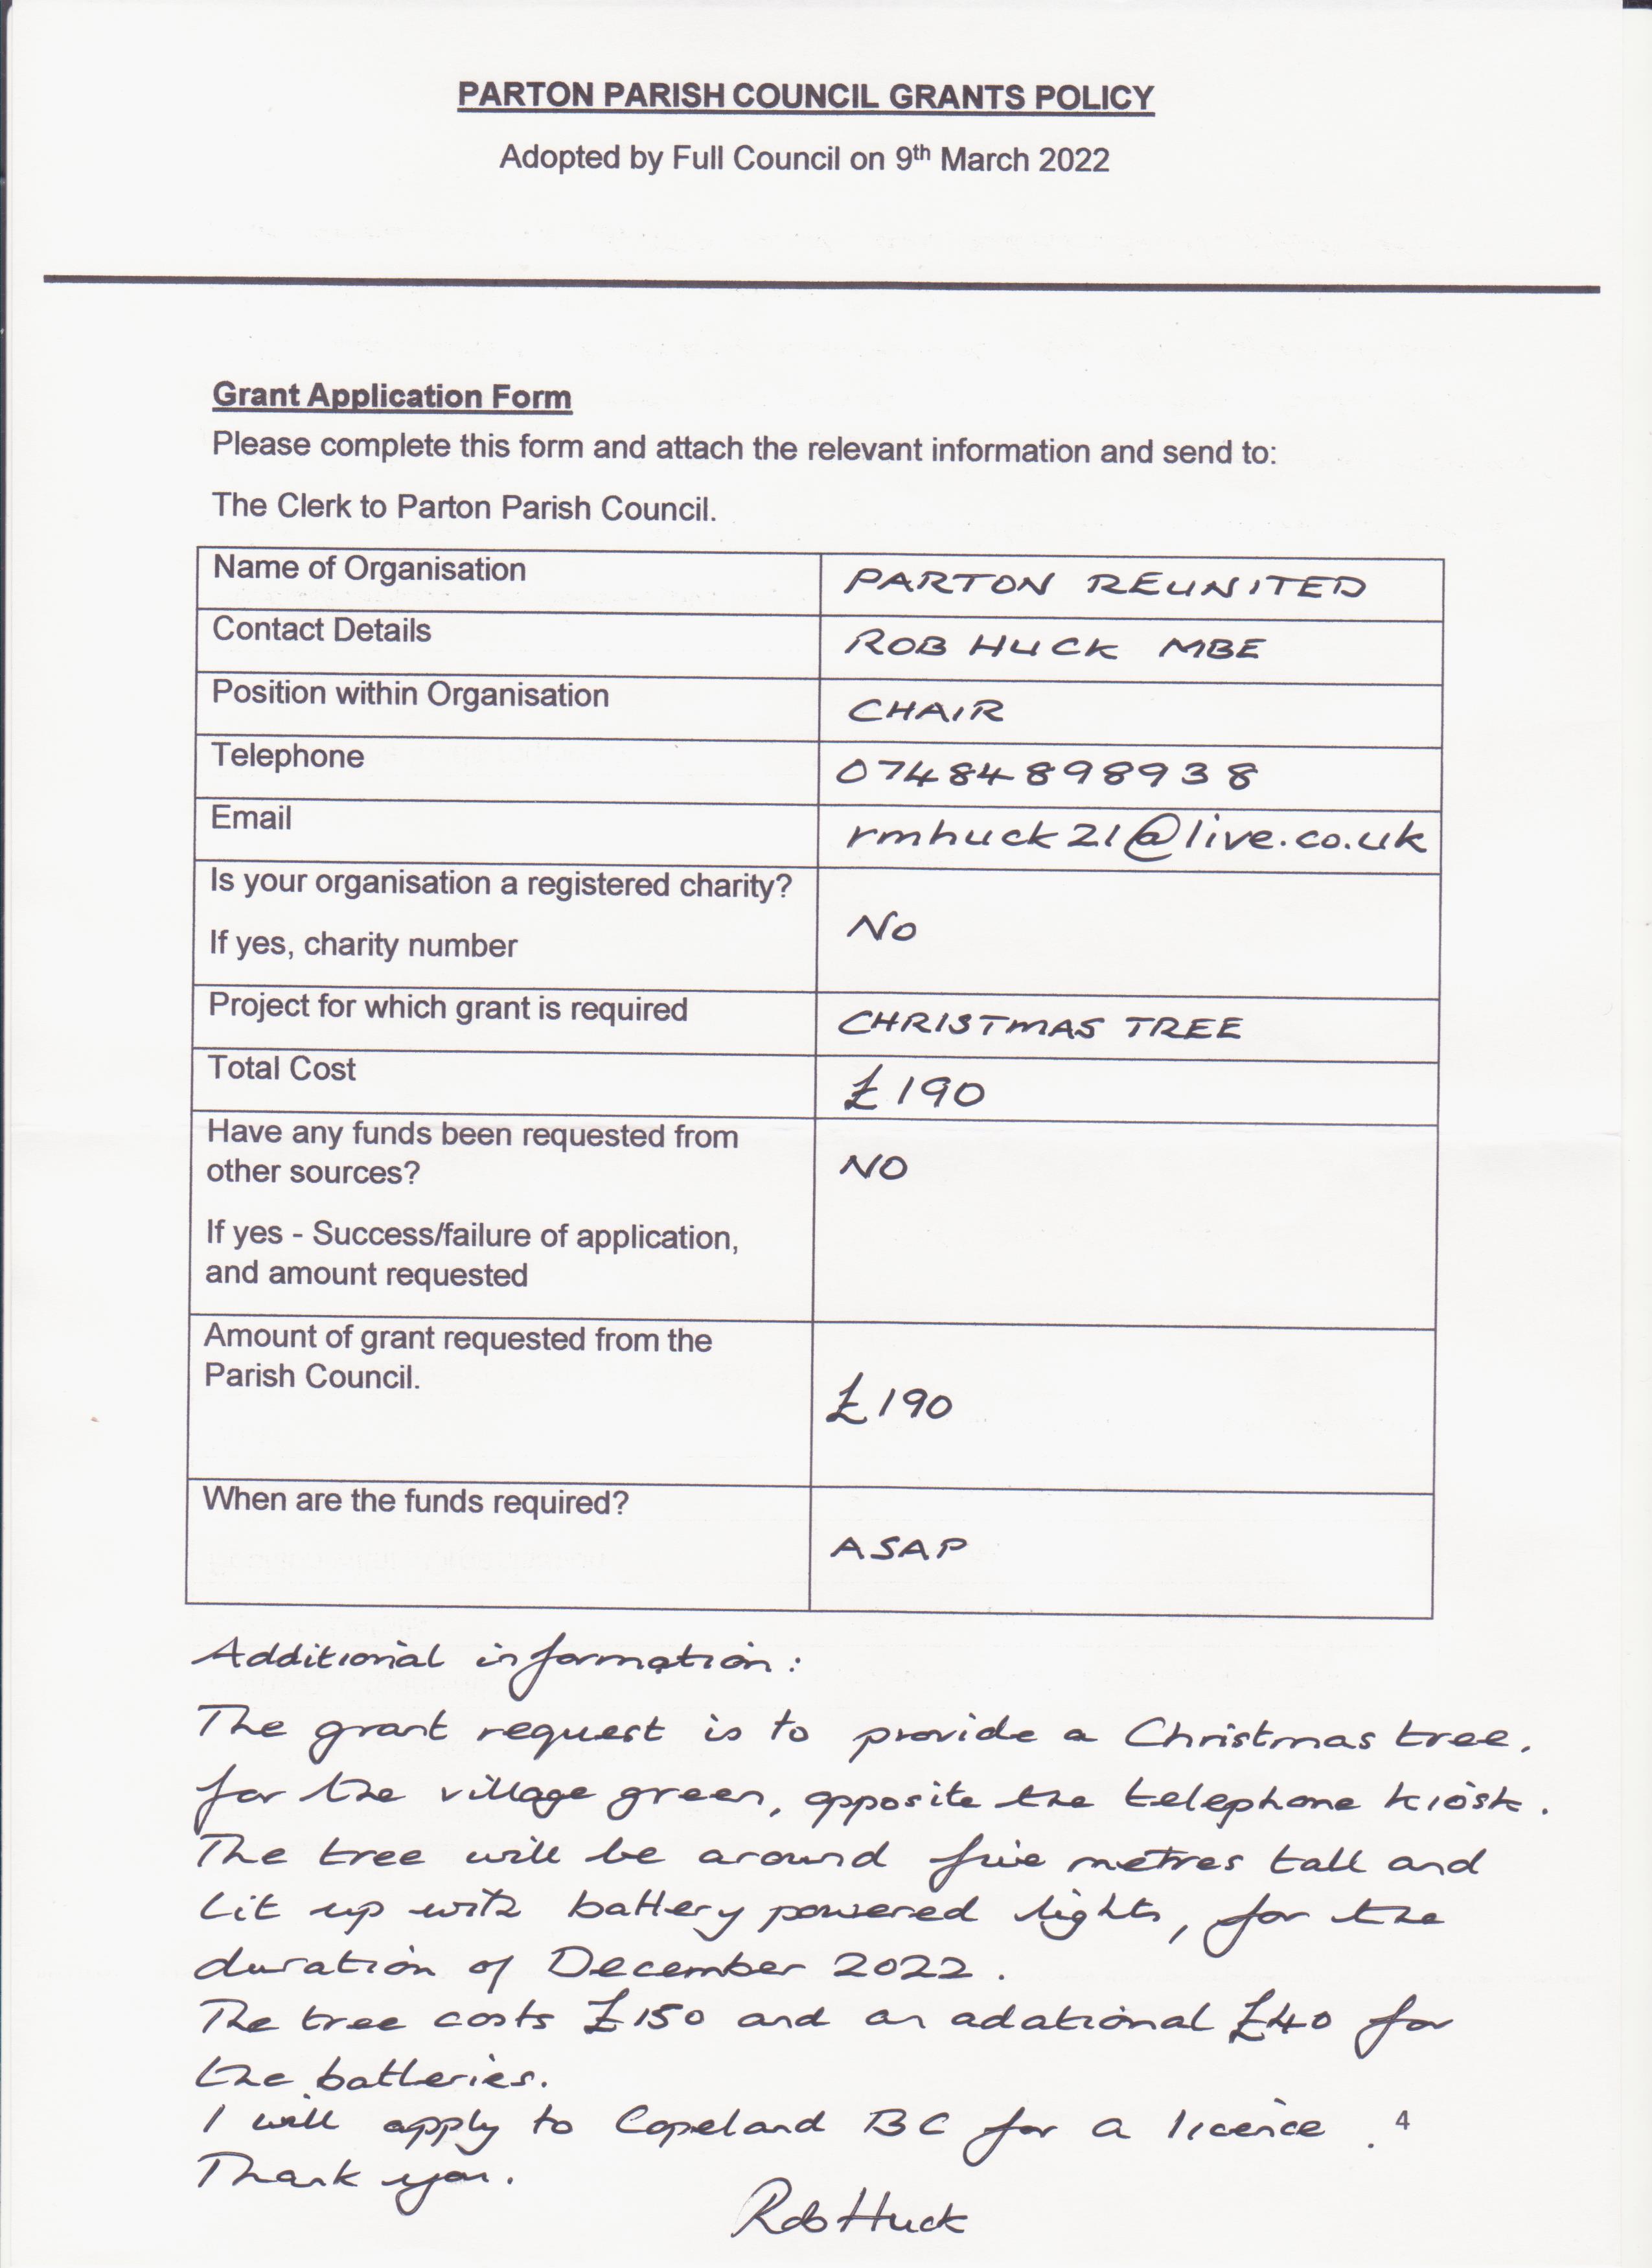 PARTON PARISH COUNCIL GRANTS POLICY
Adopted by Full Council on 9th March 2022
Grant Application Form
Please complete this form and attach the relevant information and send to:
The Clerk to Parton Parish Council.
Name of Organisation PARTON REUNITED
Contact Details ROB HUCK MBE
Position within Organisation CHAIR
Telephone 07484898938
Email rmhuck21@live.co.uk
Is your organisation a registered charity?
If yes, charity number No
Project for which grant is required CHRISTMAS TREE
Total Cost £190
Have any funds been requested from
other sources? NO
If yes - Success/failure of application,
and amount requested
Amount of grant requested from the
Parish Council. £190
When are the funds required? ASAP
Additional information:
The grant request is to provide a Christmas tree.
for the village green, opposite the telephone kiosk.
The tree will be around five metres tall and
lit up with battery powered lights, for the
duration of December 2022.
The tree costs £150 and an adational £40 for
the batteries.
I will apply to Copeland BC for a licence. 4
Thank you.
Rob Huck